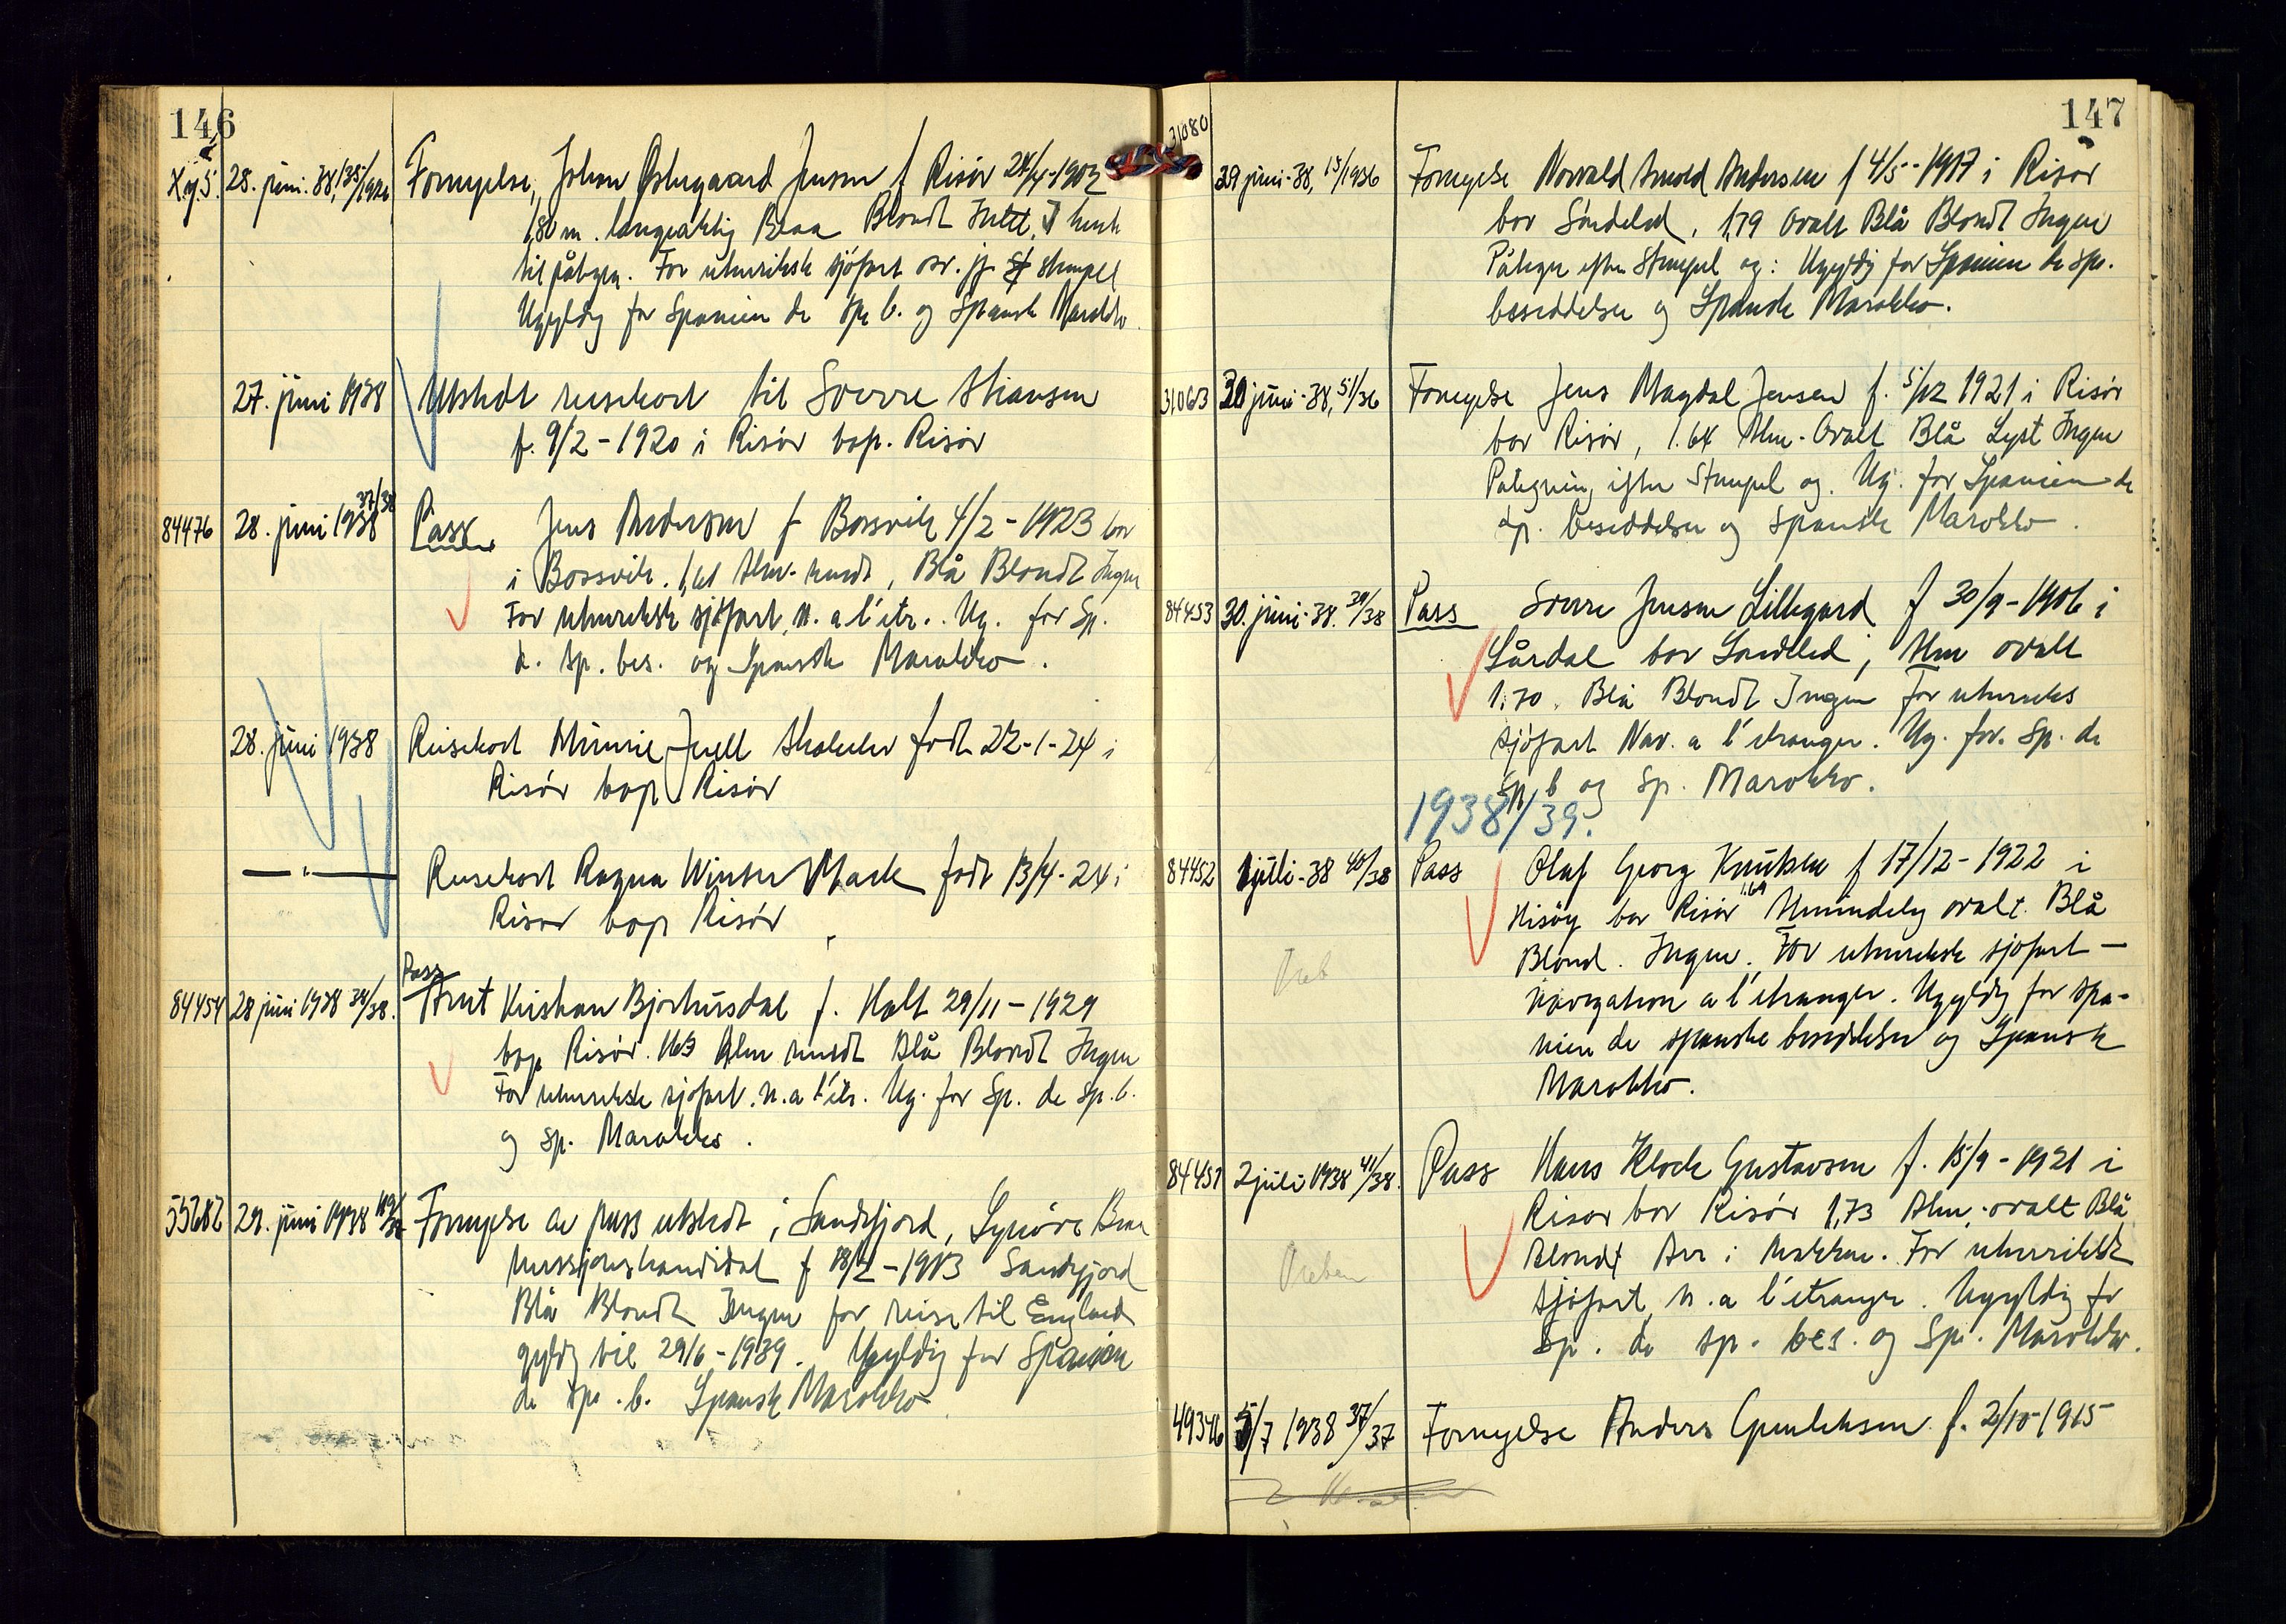 146
28. juni. 38, 135/1936 Fornyelse, Johan Østegaard Jensen f Risør 24/4-1902
1,80 m. langaktig Blaa Blondt
til påtegn. For utenriksk sjöfart stempel
Ugyldig for Spanien de sp. b. og Spansk Marokko.
27. juni 1938 Utstedt reisekort til Sverre Hansen
f. 9/2-1920 i Risör bop. Risör
84476 28. juni 1938 37/38 Pass Jens Anderson f Bossvik 4/2-1923 bor
i Bossvik. 1,61 Alm. rundt, Blå Blondt Ingen
For utenriksk sjöfart, n. a l'etr.. Ug. for Sp.
d. sp. bes. og Spansk Marokko.
28. juni 1938 Reisekort Minnie Juell födt 22-1-24 i
Risör bop. Risör
— " — Reisekort Ragna Winter Mark födt 13/4-24 i
Risør bop Risör
Pass
84454 28 juni 1938 38/38. Arnt Kristian f. Holt 29/11-1929
bop Risör. 163 Alm rundt Blå Blondt Ingen
For utenriksk sjöfart. n. a l'etr. Ug. for Sp. de Sp. b.
og sp. Marokko.
55282 29. juni 1938 Fornyelse av pass utstedt i Sandefjord,
missjonskandidat f 18/2-1913 Sandefjord
Blå Blondt Ingen for reise til England
gyldig til 29/6-1939. Ugyldig for Spanien
de sp. b. Spansk Marokko
147
31080
29 juni-38, 15/1936 Fornyelse Norvald Arnold Andersen f 4/5-1917 i Risør
bor Söndeled, 1,79 Ovalt Blå Blondt Ingen
Påtegn efter Stempel og: Ugyldig for Spanien de sp.
besiddelser og Spansk Marokko.
31063 30 juni-38, 51/36 Fornyelse Jens Magdal Jensen f. 5/12 1921 i Risör
bor Risör, 1.64 Alm. Ovalt Blå Lyst Ingen
Påtegning efter Stempel og. Ug. for Spanien de
sp. besiddelser og Spansk Marokko.
84453 30. juni-38. 39/38 Pass Sverre Jensen Lillegard f 30/9-1906 i
Gårdal bor Söndeled, Alm ovalt
1.70. Blå Blondt Ingen For utenriks
sjöfart Nav. a l'etranger. Ug. for. Sp. de
Sp. b og Sp. Marokko.
1938/39.
84452 1 juli-38 40/38 Pass Olaf Georg Knutsen f 17/12-1922 i
Hisöy bor Risör 1.69 Almindelig ovalt. Blå
Blond. Ingen. For utenriksk sjöfart —
navigation a l'etranger. Ugyldig for Spa-
nien de spanske besiddelser og Spansk
Marokko.
84451 2 juli 1938 41/38. Pass Hans Klock Gustavsen f. 15/9-1921 i
Risør bor Risör 1,73 Alm. ovalt Blå
Blondt Arr i nakken. For utenriksk
sjöfart, n. a l'etranger. Ugyldig for
Sp. de sp. bes. og Sp. Marokko.
49346 5/7 1938 37/37 Fornyelse Anders f. 2/10-1915